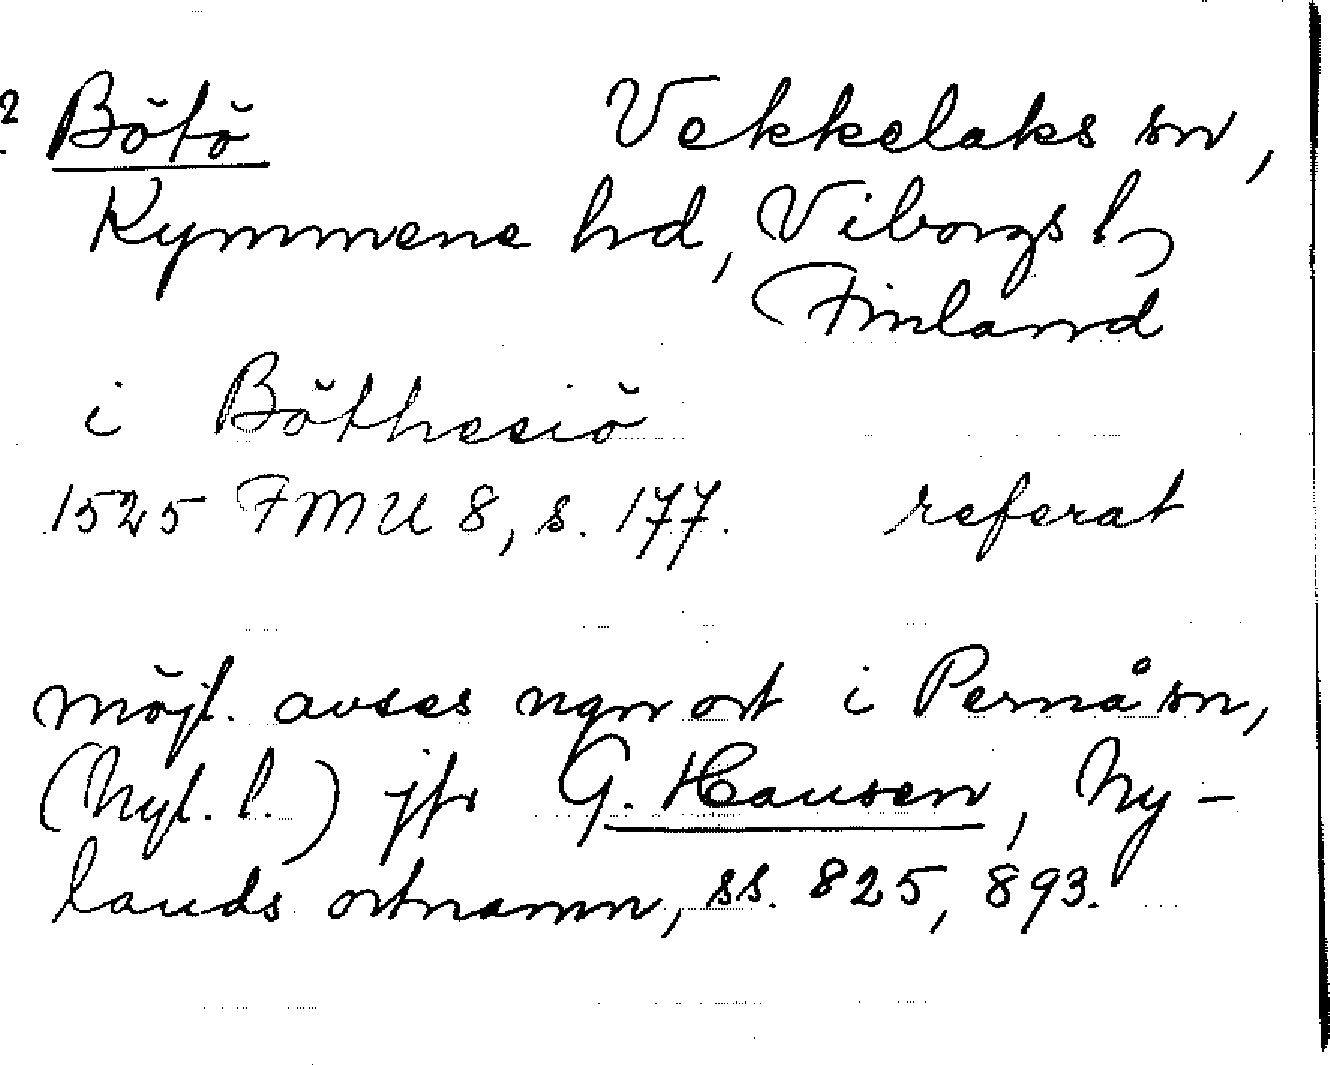 ? Bötö Vekkelaks sn,
Kymmene hd, Viborgs l,
Finland
i Böthesiö
1525 FMU 8, s. 177. referat
möjl. avses ngn ort i Pernå sn,
(Nyl. l.) jfr G. Hausen, Ny-
lands ortnamn, ss. 825, 893.